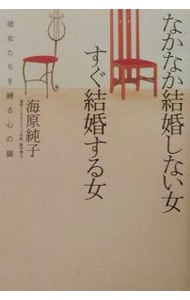 なかなか結婚しない女
すぐ結婚する女
彼女たちを縛る心の鎖
海原純子